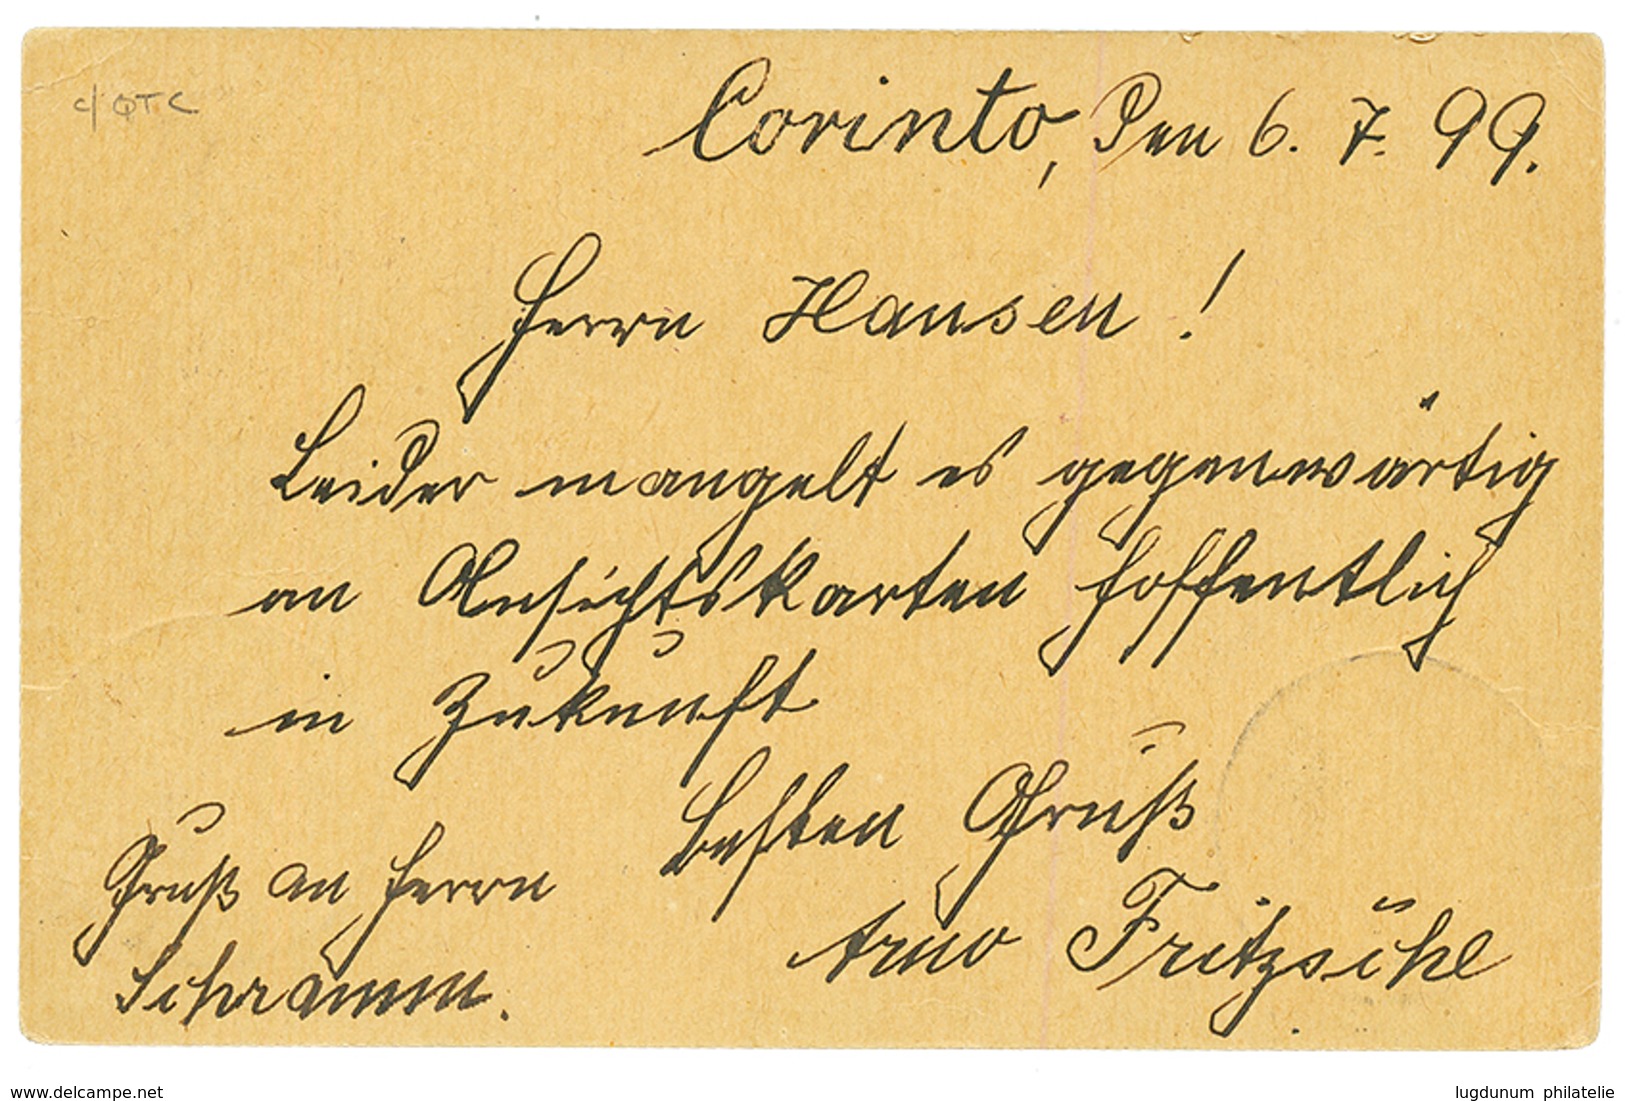 c/ QTC
Corinto, den 6. 7. 99.
Herrn Hansen!
Leider mangelt es gegenwärtig
an Ansichtskarten hoffentlich
in Zukunft
Besten Gruß
Arno Fritzsche
Gruß an Herrn
Schramm.
www.delcampe.net
lugdunum philatelie